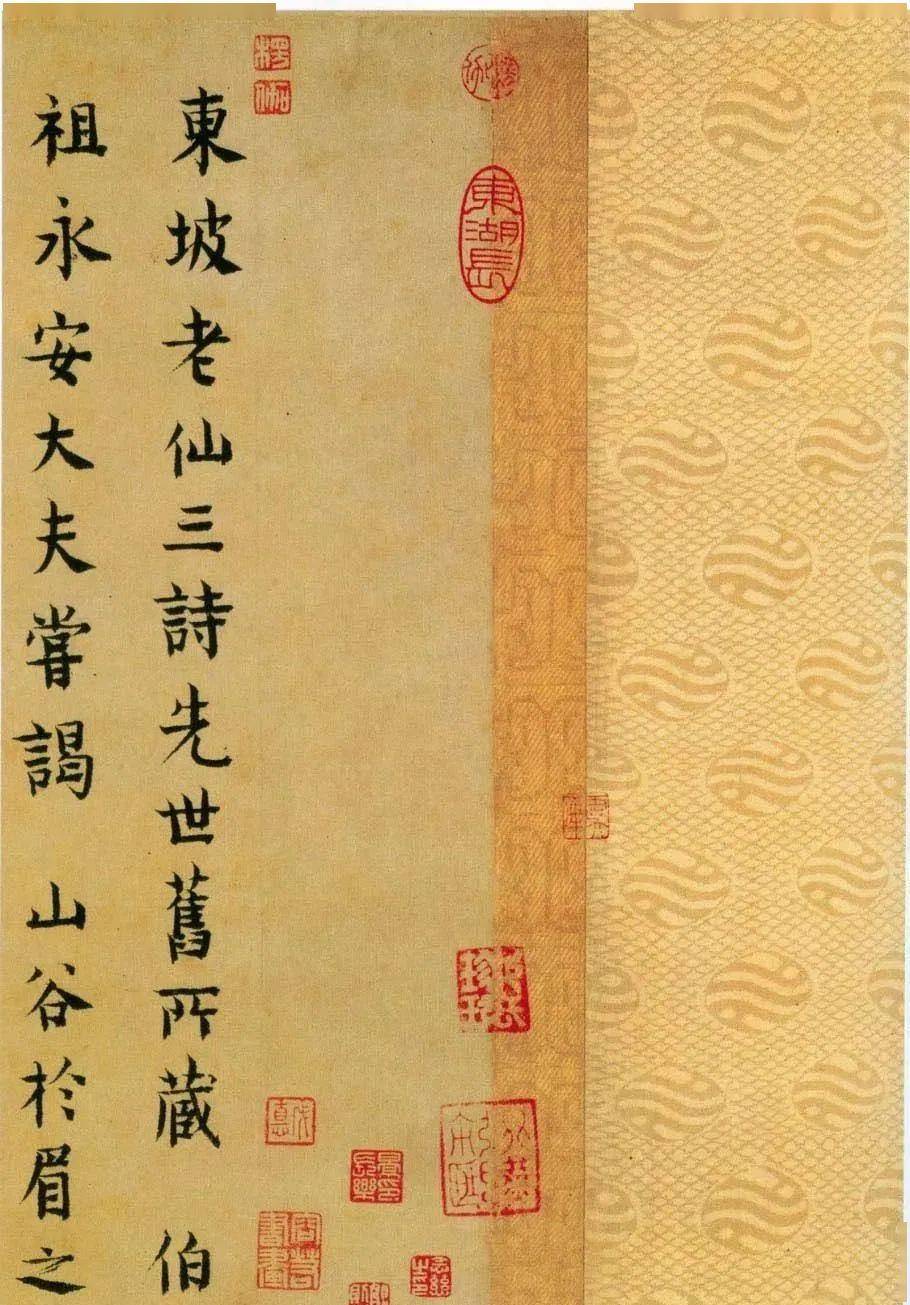 東坡老仙三詩先世舊所蔵 伯
祖永安大夫嘗謁 山谷於眉之
東湖長
楞伽